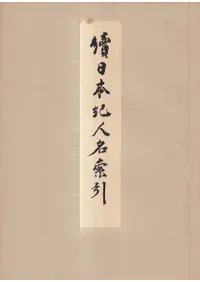 續日本紀人名索引